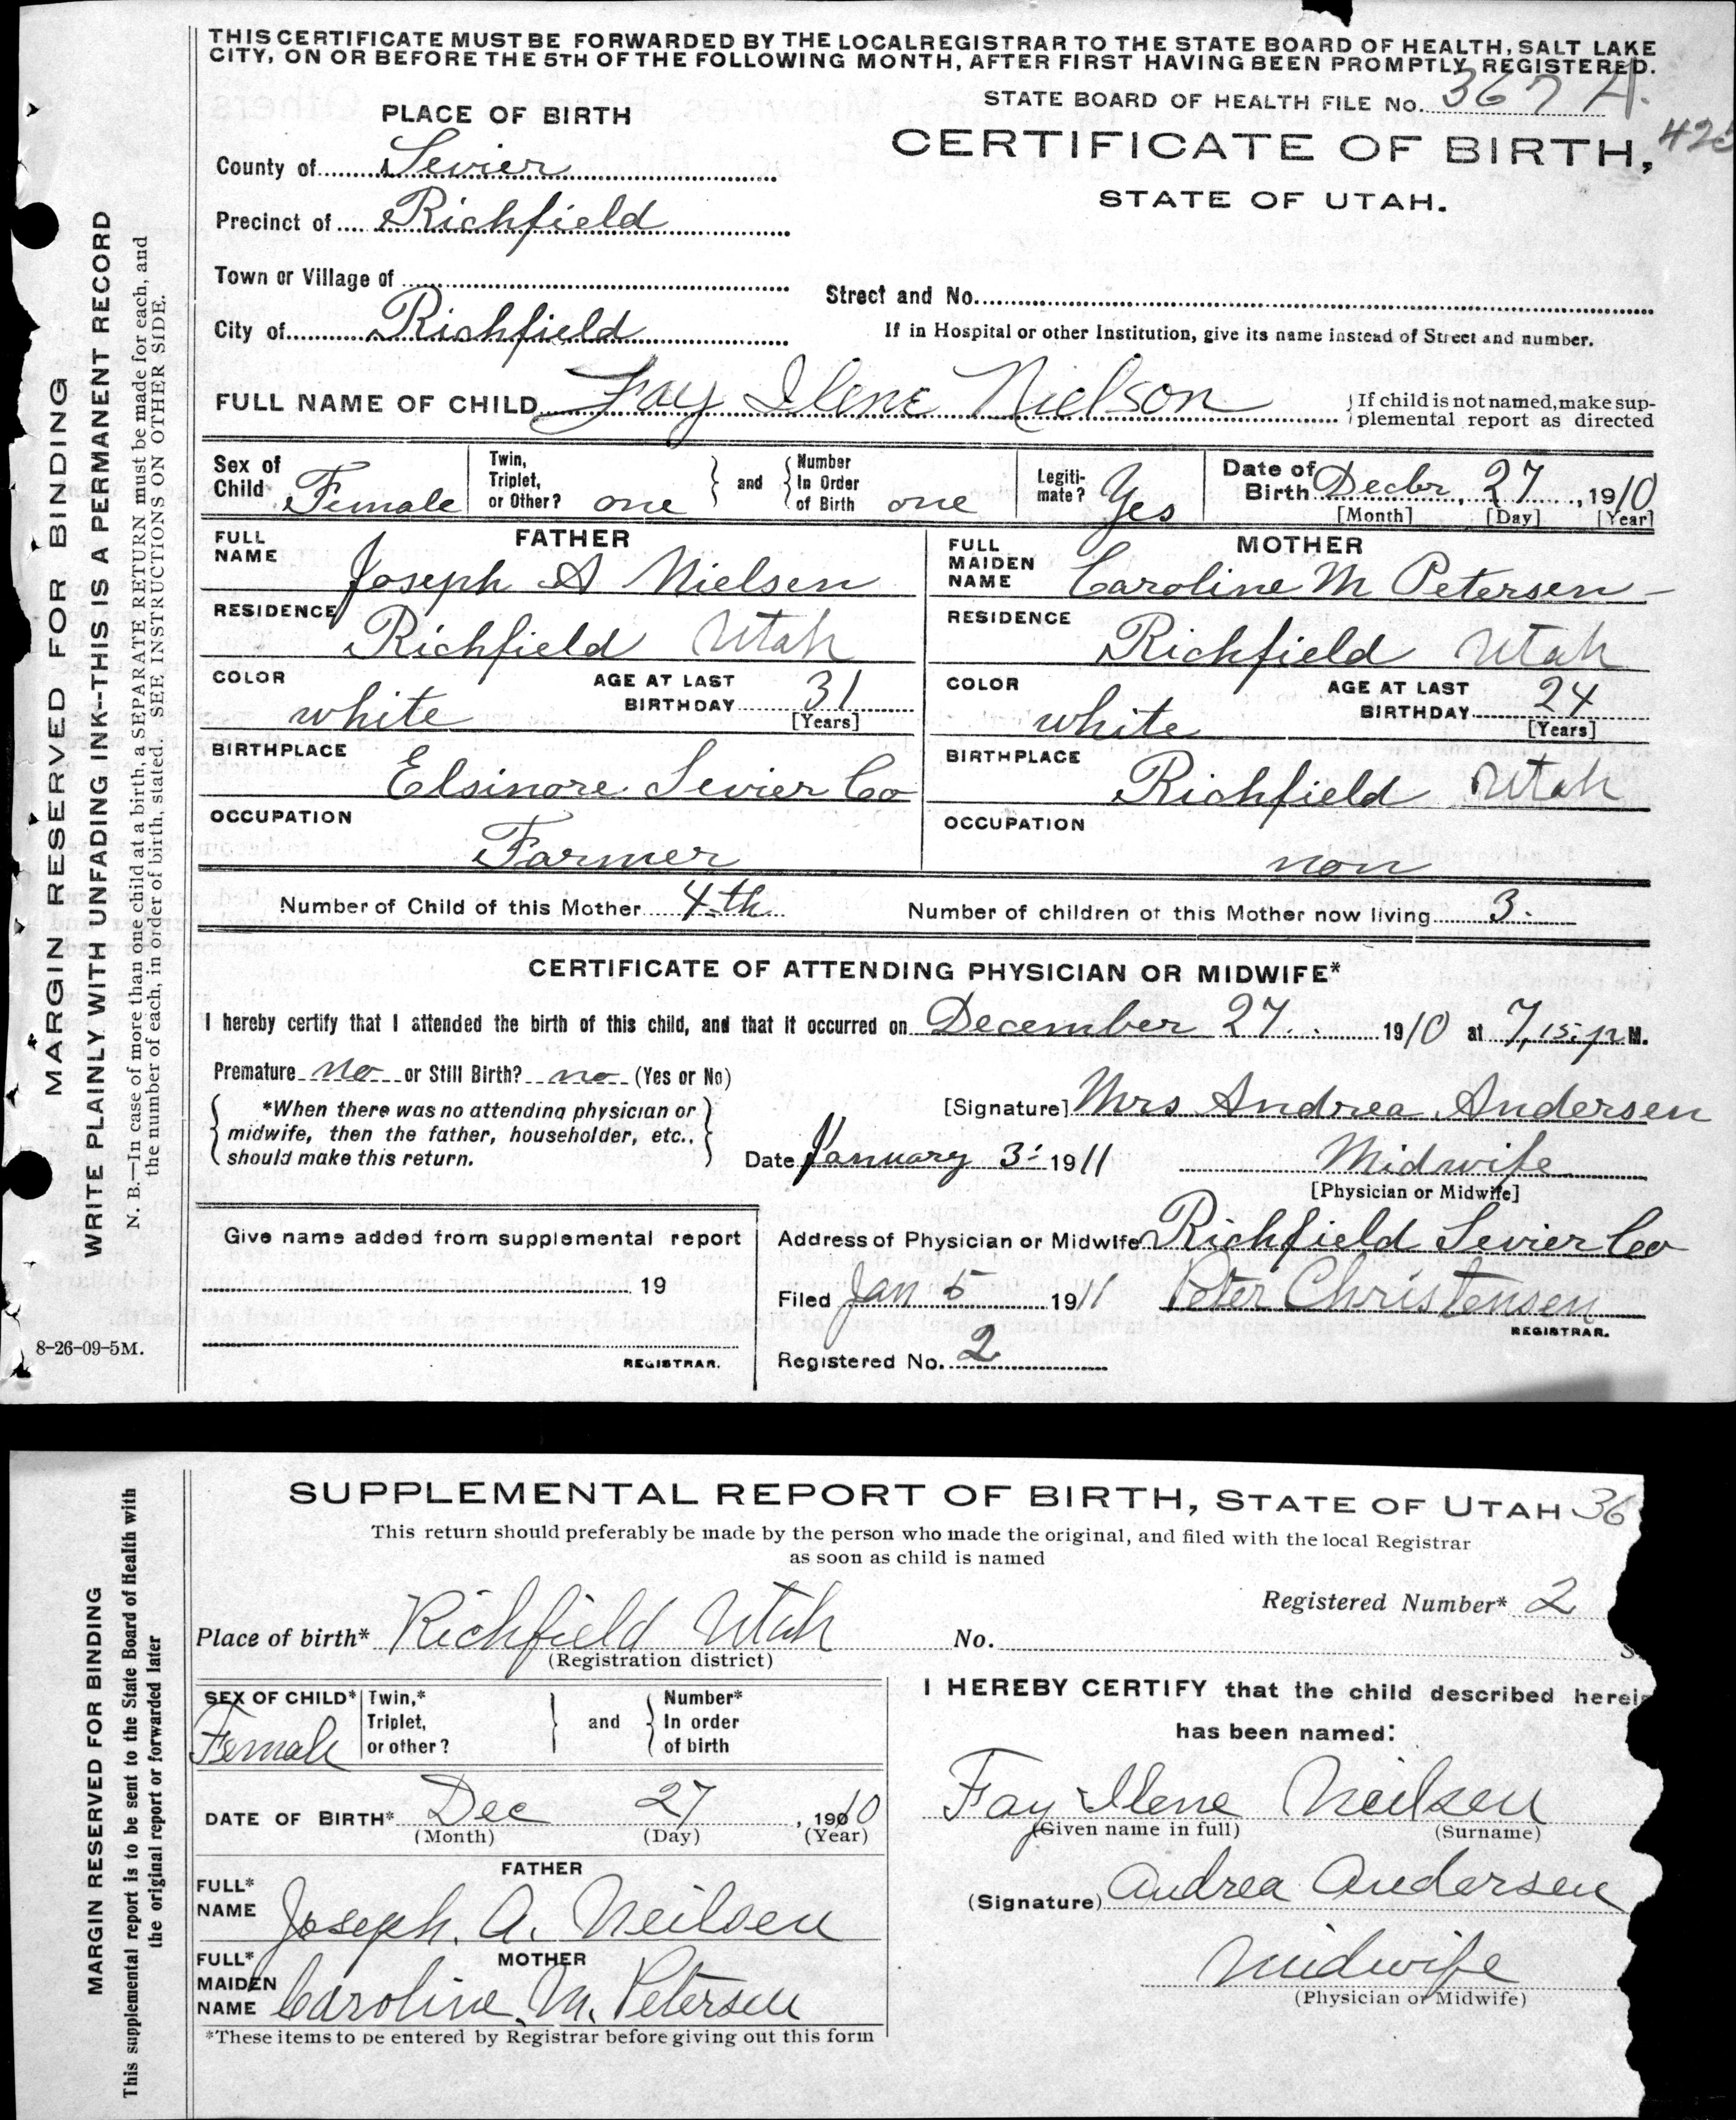 THIS CERTIFICATE MUST BE FORWARDED BY THE LOCAL REGISTRAR TO THE STATE BOARD OF HEALTH, SALT LAKE
CITY, ON OR BEFORE THE 5TH OF THE FOLLOWING MONTH, AFTER FIRST HAVING BEEN PROMPTLY REGISTERED.
STATE BOARD OF HEALTH FILE No. 367 4.
PLACE OF BIRTH
CERTIFICATE OF BIRTH,
STATE OF UTAH.
County of Sevier
Precinct of Richfield
Town or Village of
Street and No.
City of Richfield
If in Hospital or other Institution, give its name instead of Street and number.
FULL NAME OF CHILD Fay Ilene Nielson
If child is not named, make sup-
plemental report as directed
Sex of Child Female
Twin, Triplet, or Other? one
and
Number In Order of Birth one
Legiti-mate? Yes
Date of Birth Decbr, 27, 1910
[Month] [Day] [Year]
FATHER
FULL NAME Joseph A Nielsen
RESIDENCE Richfield Utah
COLOR white
AGE AT LAST BIRTHDAY 31
[Years]
BIRTHPLACE Elsinore Sevier Co
OCCUPATION Farmer
MOTHER
FULL MAIDEN NAME Caroline M Petersen
RESIDENCE Richfield Utah
COLOR white
AGE AT LAST BIRTHDAY 24
[Years]
BIRTHPLACE Richfield Utah
OCCUPATION non
Number of Child of this Mother 4th
Number of children of this Mother now living 3.
CERTIFICATE OF ATTENDING PHYSICIAN OR MIDWIFE*
I hereby certify that I attended the birth of this child, and that it occurred on December 27. 1910 at 7,15. p M.
Premature no or Still Birth? no (Yes or No)
*When there was no attending physician or
midwife, then the father, householder, etc.,
should make this return.
[Signature] Mrs Andrea Andersen
Date January 3 1911
Midwife
[Physician or Midwife]
Give name added from supplemental report
19
REGISTRAR.
Address of Physician or Midwife Richfield Sevier Co
Filed Jan 5 1911 Peter Christensen
REGISTRAR.
Registered No. 2
8-26-09-5M.
MARGIN RESERVED FOR BINDING
WRITE PLAINLY WITH UNFADING INK--THIS IS A PERMANENT RECORD
N. B.—In case of more than one child at a birth, a SEPARATE RETURN must be made for each, and
the number of each, in order of birth, stated. SEE INSTRUCTIONS ON OTHER SIDE.
SUPPLEMENTAL REPORT OF BIRTH, STATE OF UTAH 36
This return should preferably be made by the person who made the original, and filed with the local Registrar
as soon as child is named
Registered Number* 2
Place of birth* Richfield Utah
(Registration district)
No.
SEX OF CHILD* Female
Twin,* Triplet, or other?
and
Number* In order of birth
DATE OF BIRTH* Dec 27, 1910
(Month) (Day) (Year)
FATHER
FULL* NAME Joseph. A. Neilsen
MOTHER
FULL* MAIDEN NAME Caroline. M. Petersen
*These items to be entered by Registrar before giving out this form
I HEREBY CERTIFY that the child described herein
has been named:
Fay Ilene Neilsen
(Given name in full) (Surname)
(Signature) Andrea Andersen
Midwife
(Physician or Midwife)
MARGIN RESERVED FOR BINDING
This supplemental report is to be sent to the State Board of Health with
the original report or forwarded later